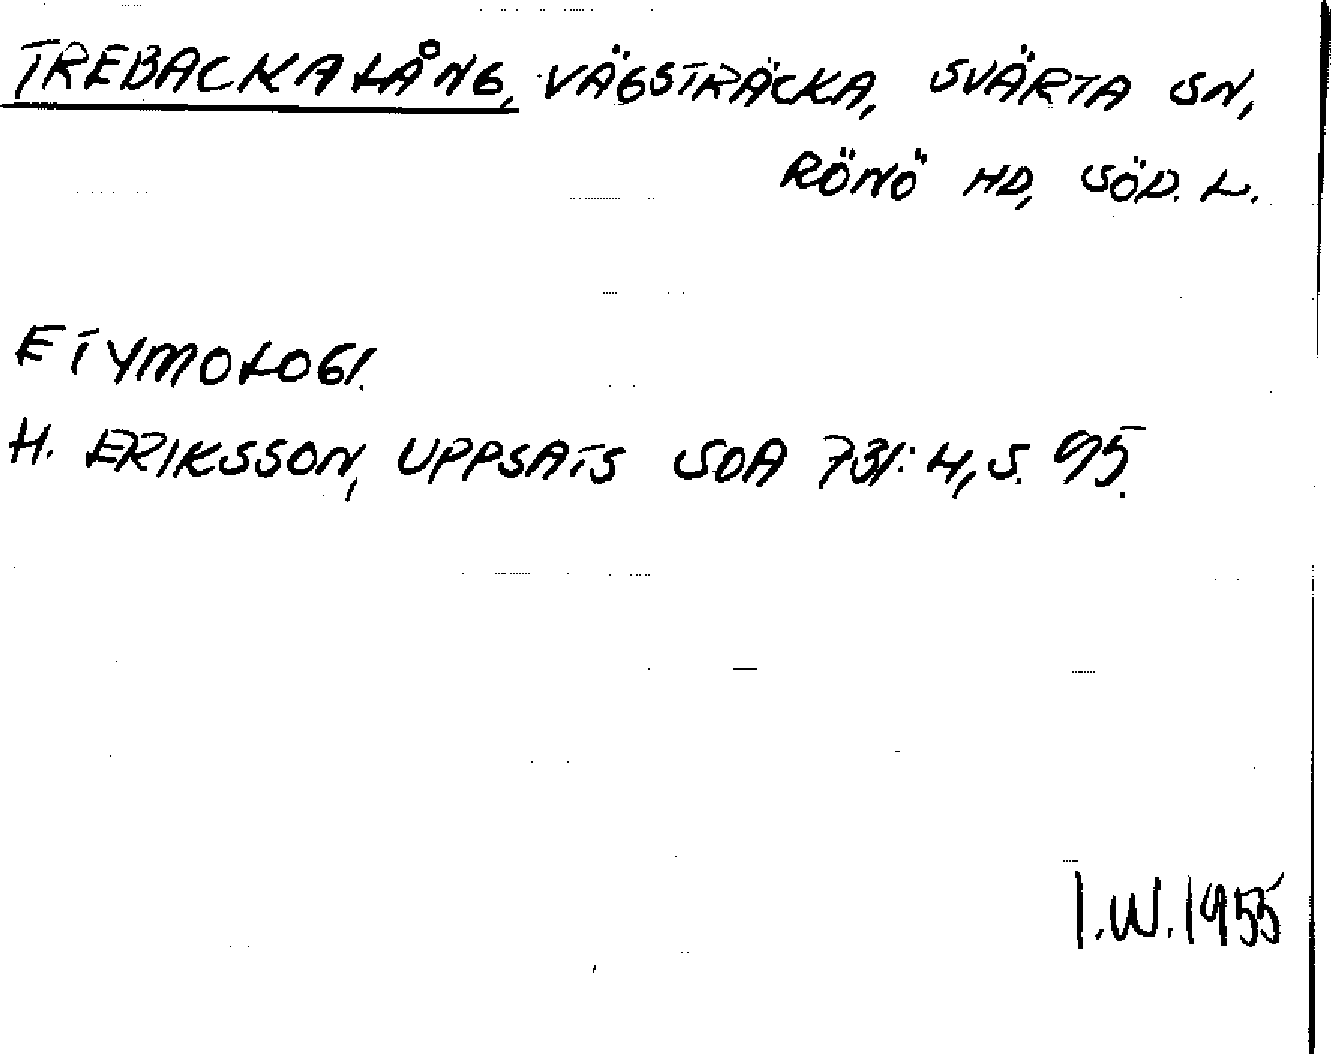 TREBACKALÅNG, VÄGSTRÄCKA, SVÄRTA SN,
RÖNÖ HD, SÖD. L.
ETYMOLOGI.
H. ERIKSSON, UPPSATS SOA 731: 4, S. 95.
I.W. 1955